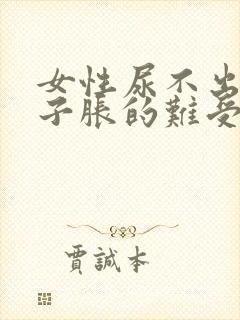 女性尿不出
子脹的難受
賈誠本